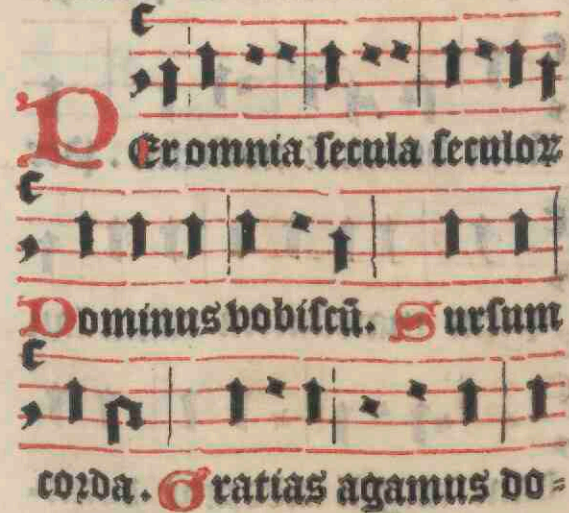 PEr omnia ſecula ſeculoꝝ
Dominus vobiſcū. Surſum
corda. Gratias agamus do⸗